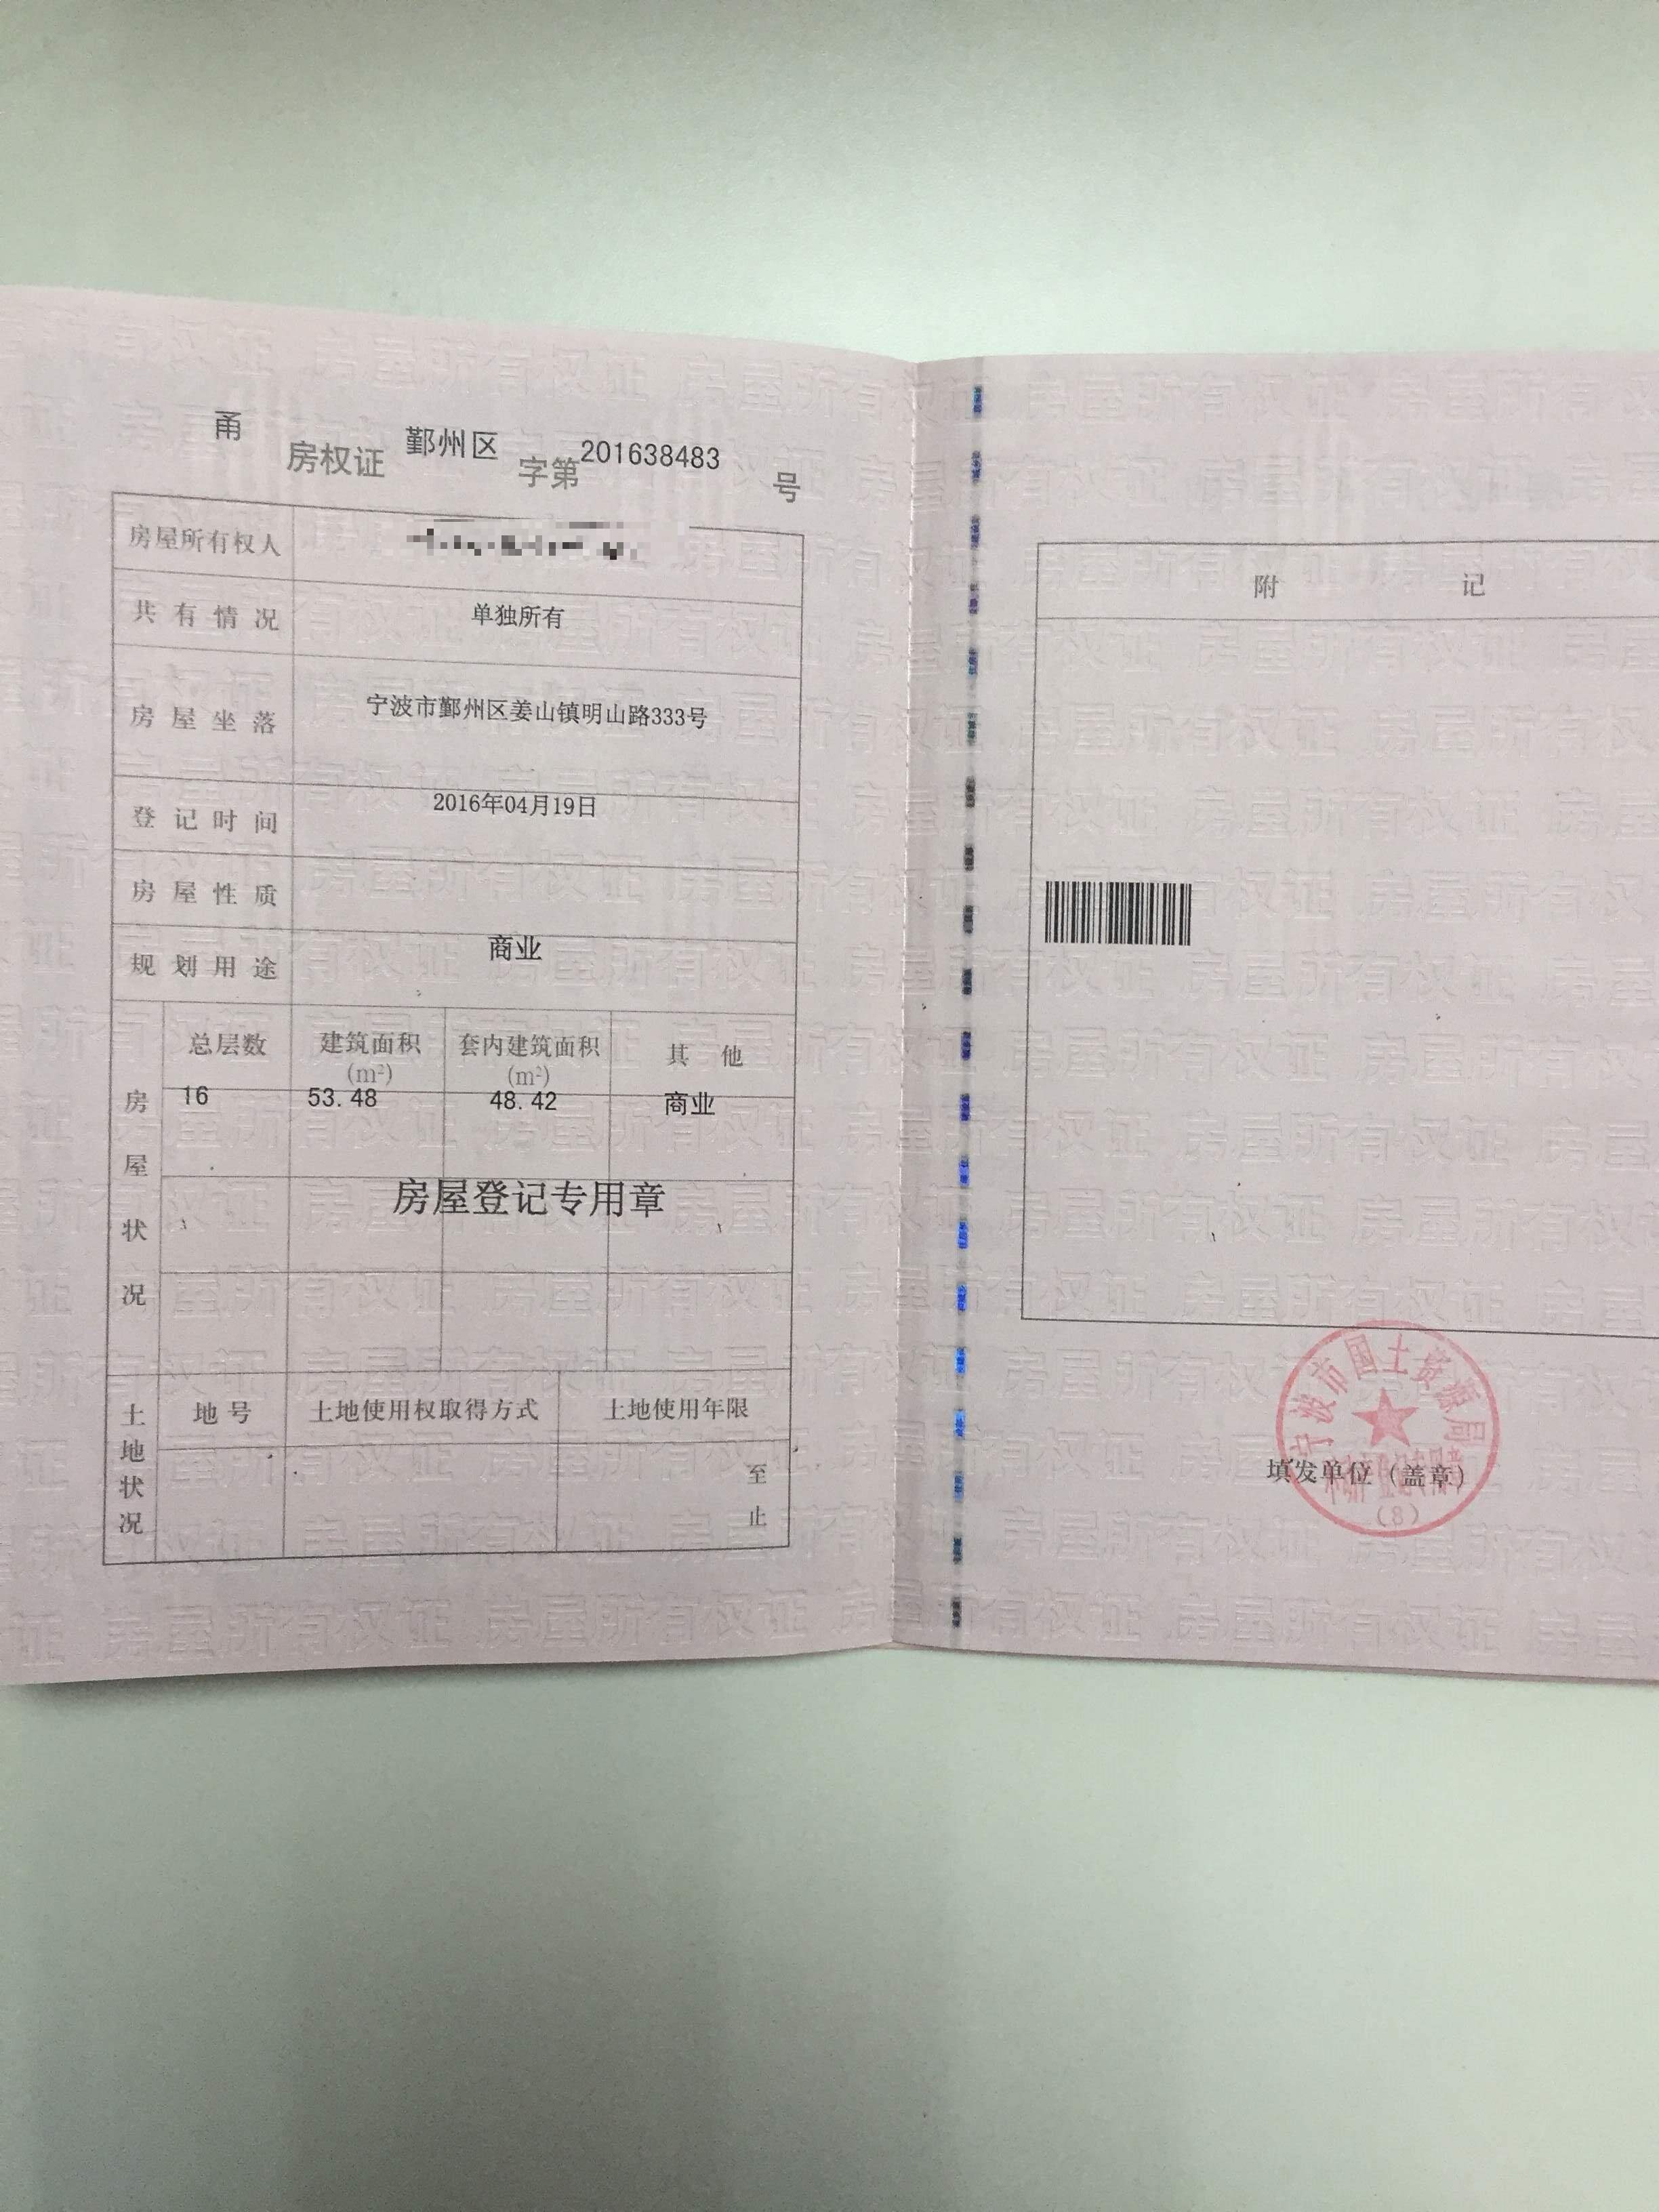 甬房权证鄞州区字第201638483号
房屋所有权人
共有情况 单独所有
房屋坐落 宁波市鄞州区姜山镇明山路333号
登记时间 2016年04月19日
房屋性质
规划用途 商业
房屋状况
总层数 建筑面积(m²) 套内建筑面积(m²) 其他
16 53.48 48.42 商业
房屋登记专用章
土地状况
地号 土地使用权取得方式 土地使用年限
至
止
附记
宁波市国土资源局
填发单位(盖章)
(8)